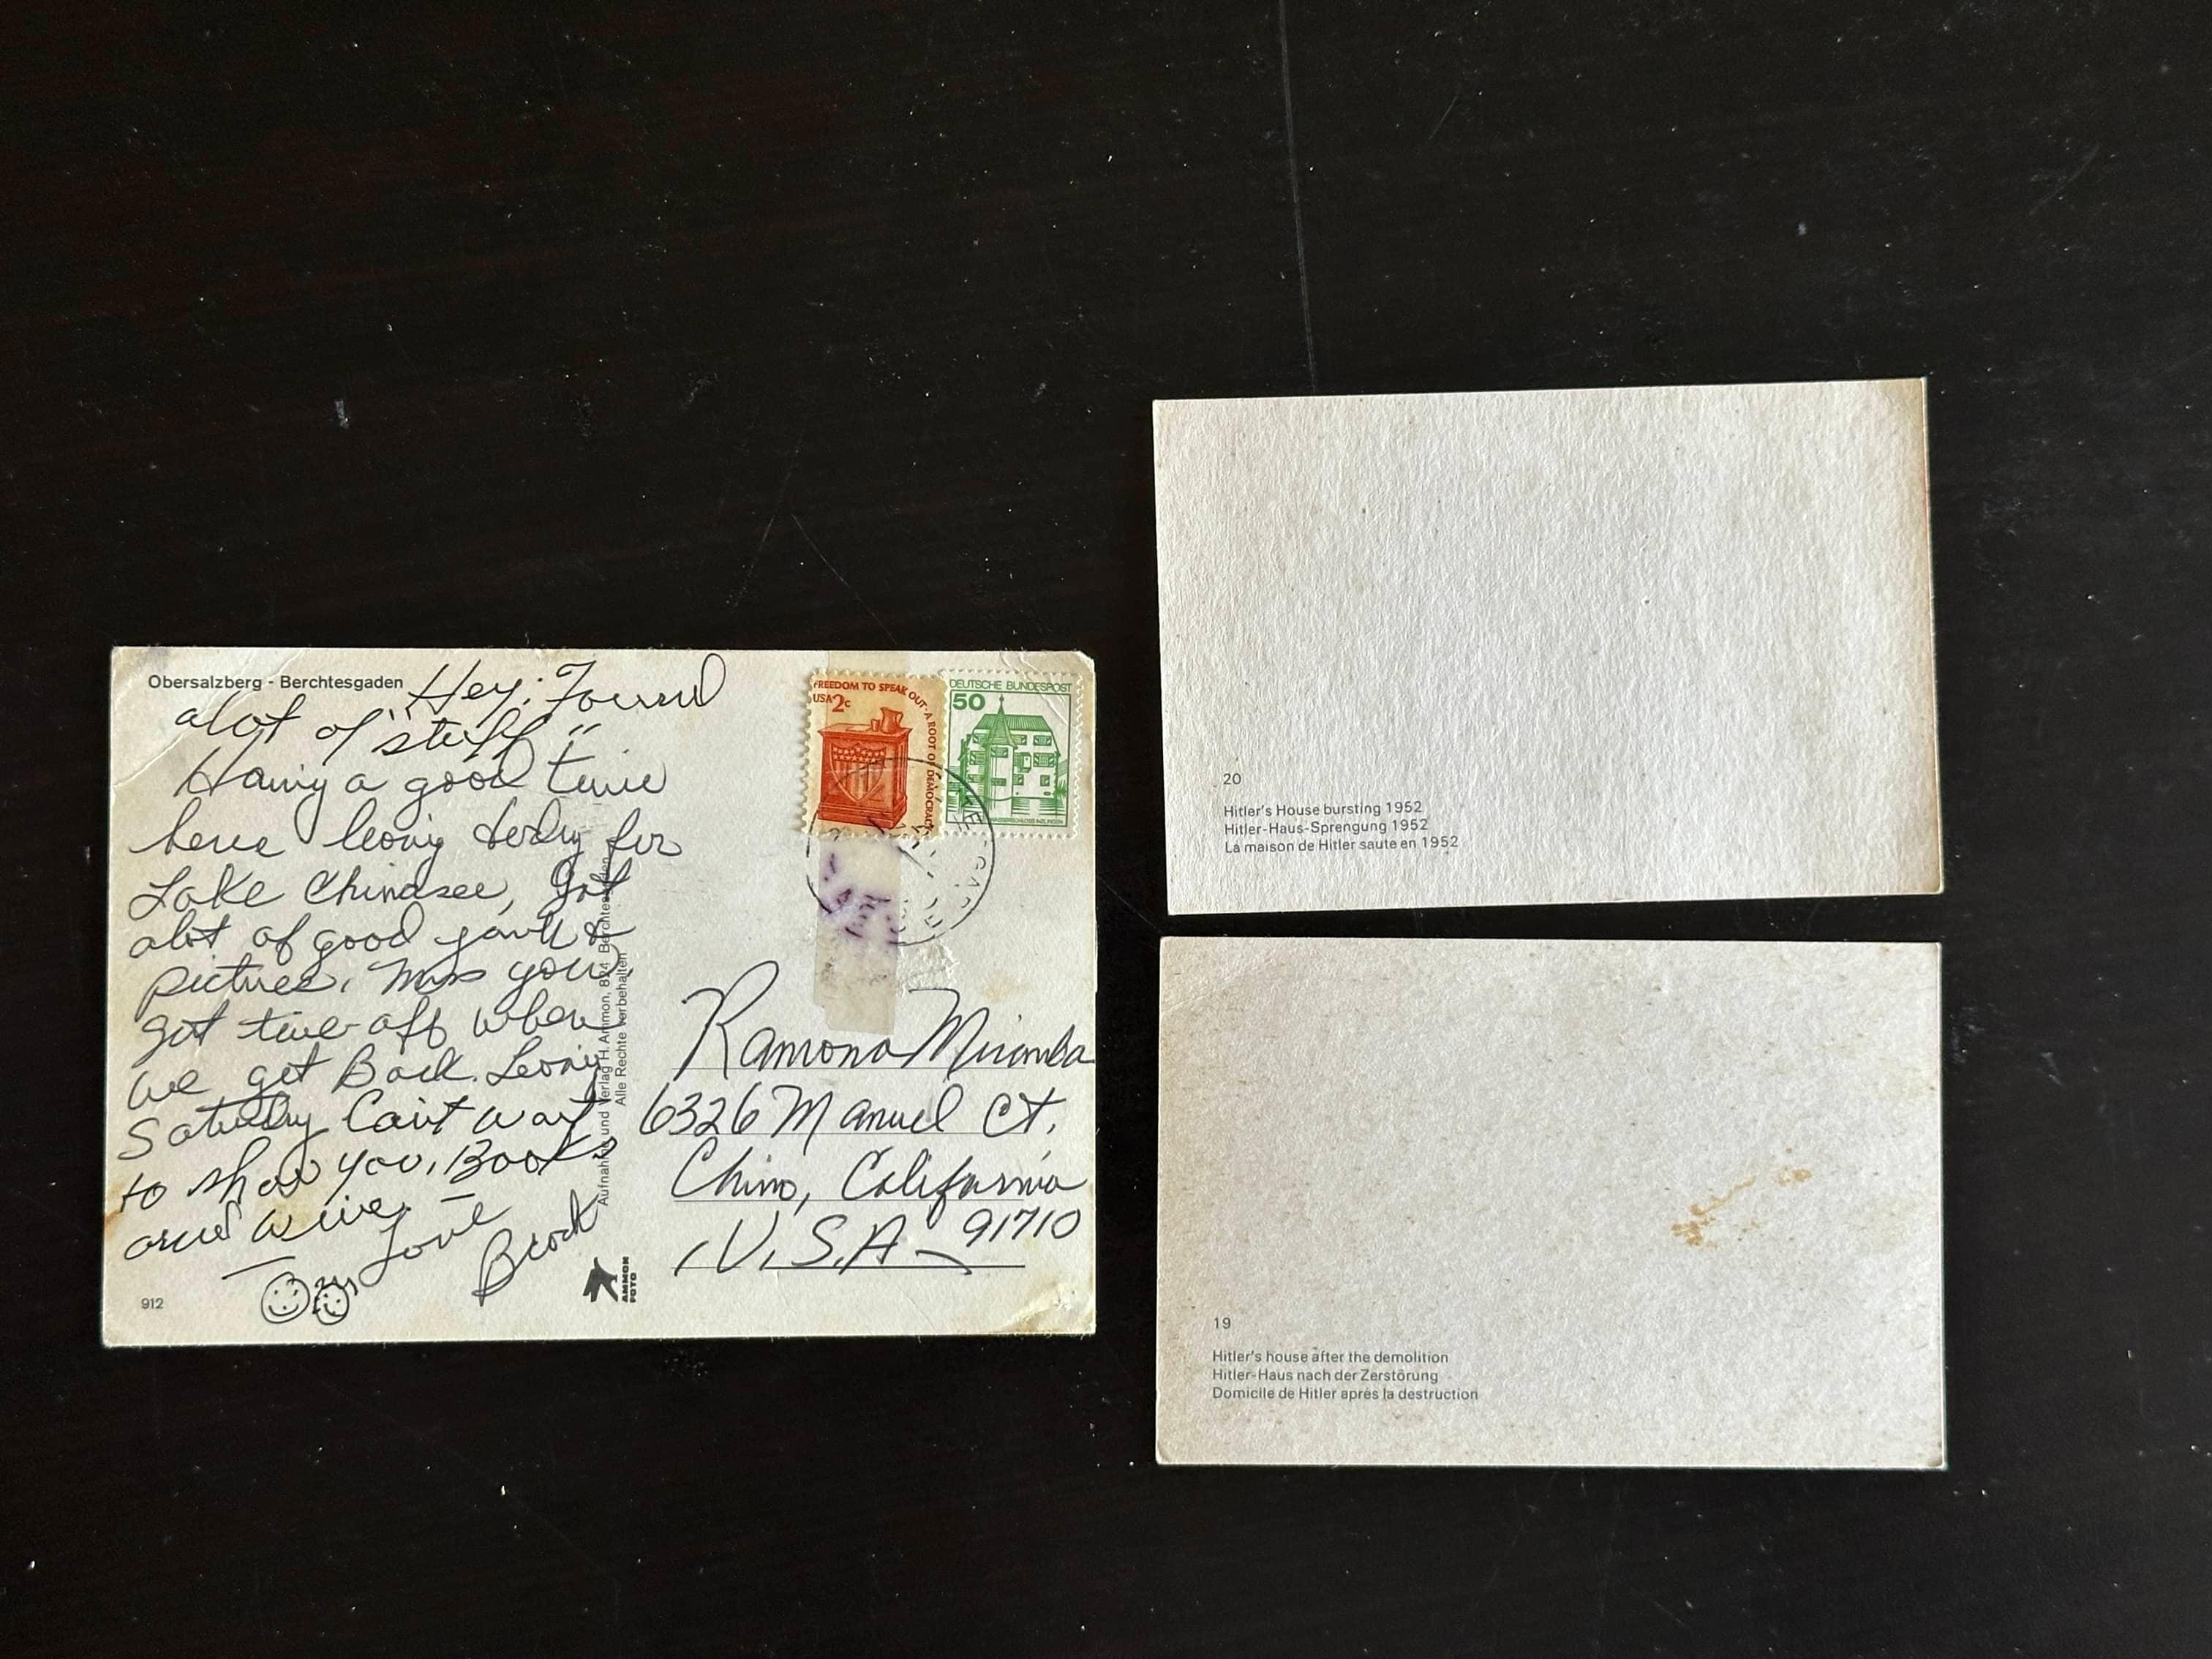 Obersalzberg - Berchtesgaden
Hey; Found
alot of "stuff"
Having a good time
here leaving today for
Lake Chimdsee, Got
alot of good junk &
pictures. Miss you,
got time off when
we get Back. Leaving
Saturday Can't wait
to show you. Books
and wine.
Love
Brock
912
Aufnahme und Verlag H. Ammon, 824 Berchtesgaden
Alle Rechte vorbehalten
AMMON
FOTO
FREEDOM TO SPEAK OUT-A ROOT OF DEMOCRACY
USA 2c
DEUTSCHE BUNDESPOST
50
Ramona Miramba
6326 Manuel Ct.
Chino, California
U.S.A 91710
20
Hitler's House bursting 1952
Hitler-Haus-Sprengung 1952
La maison de Hitler saute en 1952
19
Hitler's house after the demolition
Hitler-Haus nach der Zerstörung
Domicile de Hitler aprés la destruction